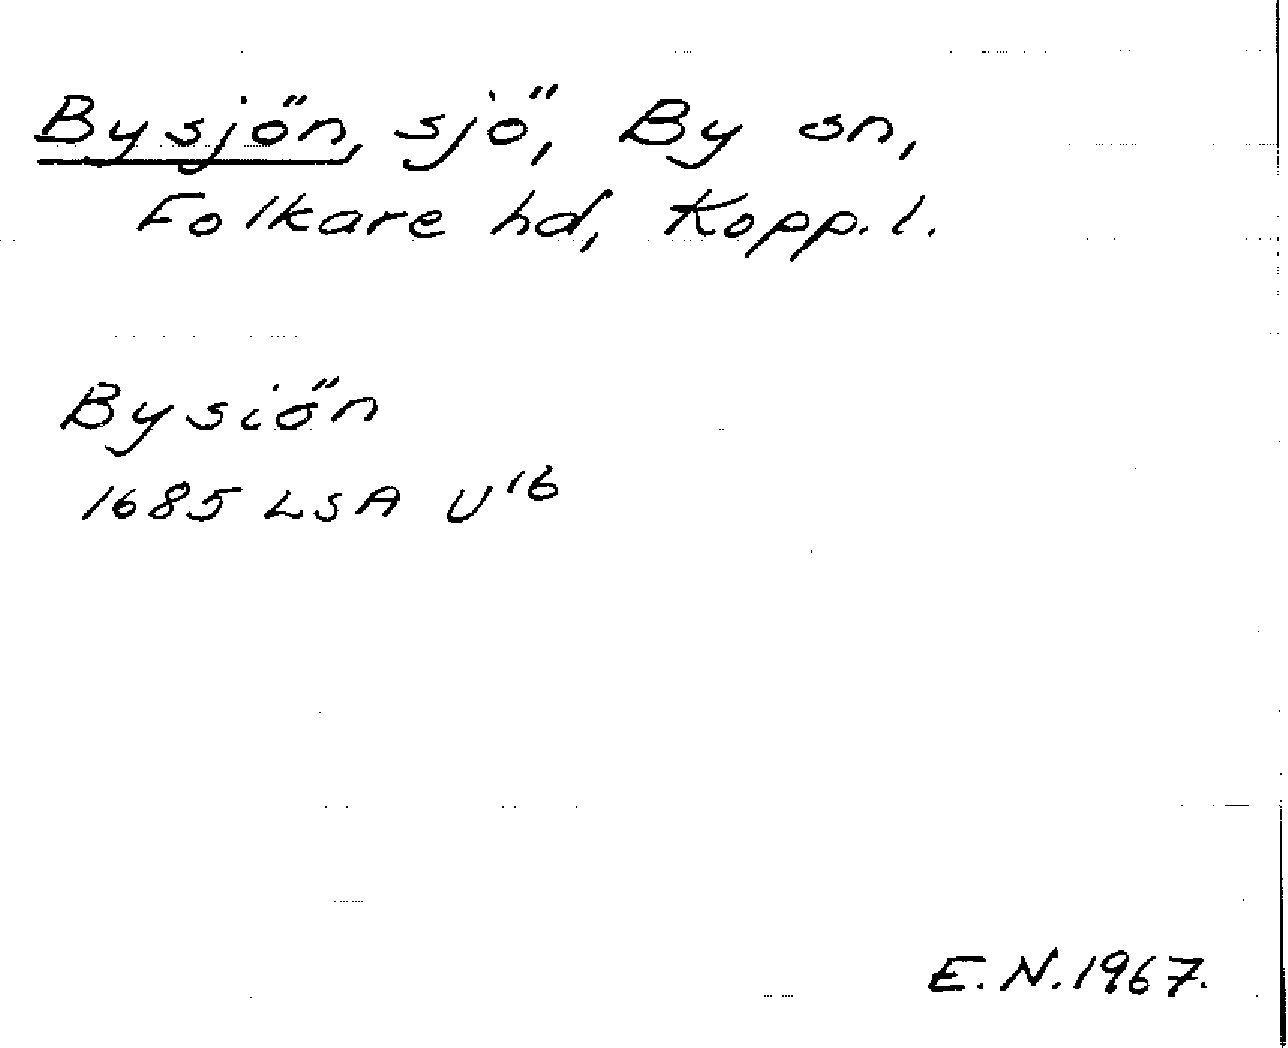 Bysjön, sjö, By sn,
Folkare hd, Kopp. l.
Bysiön
1685 LSA U¹⁶
E. N. 1967.